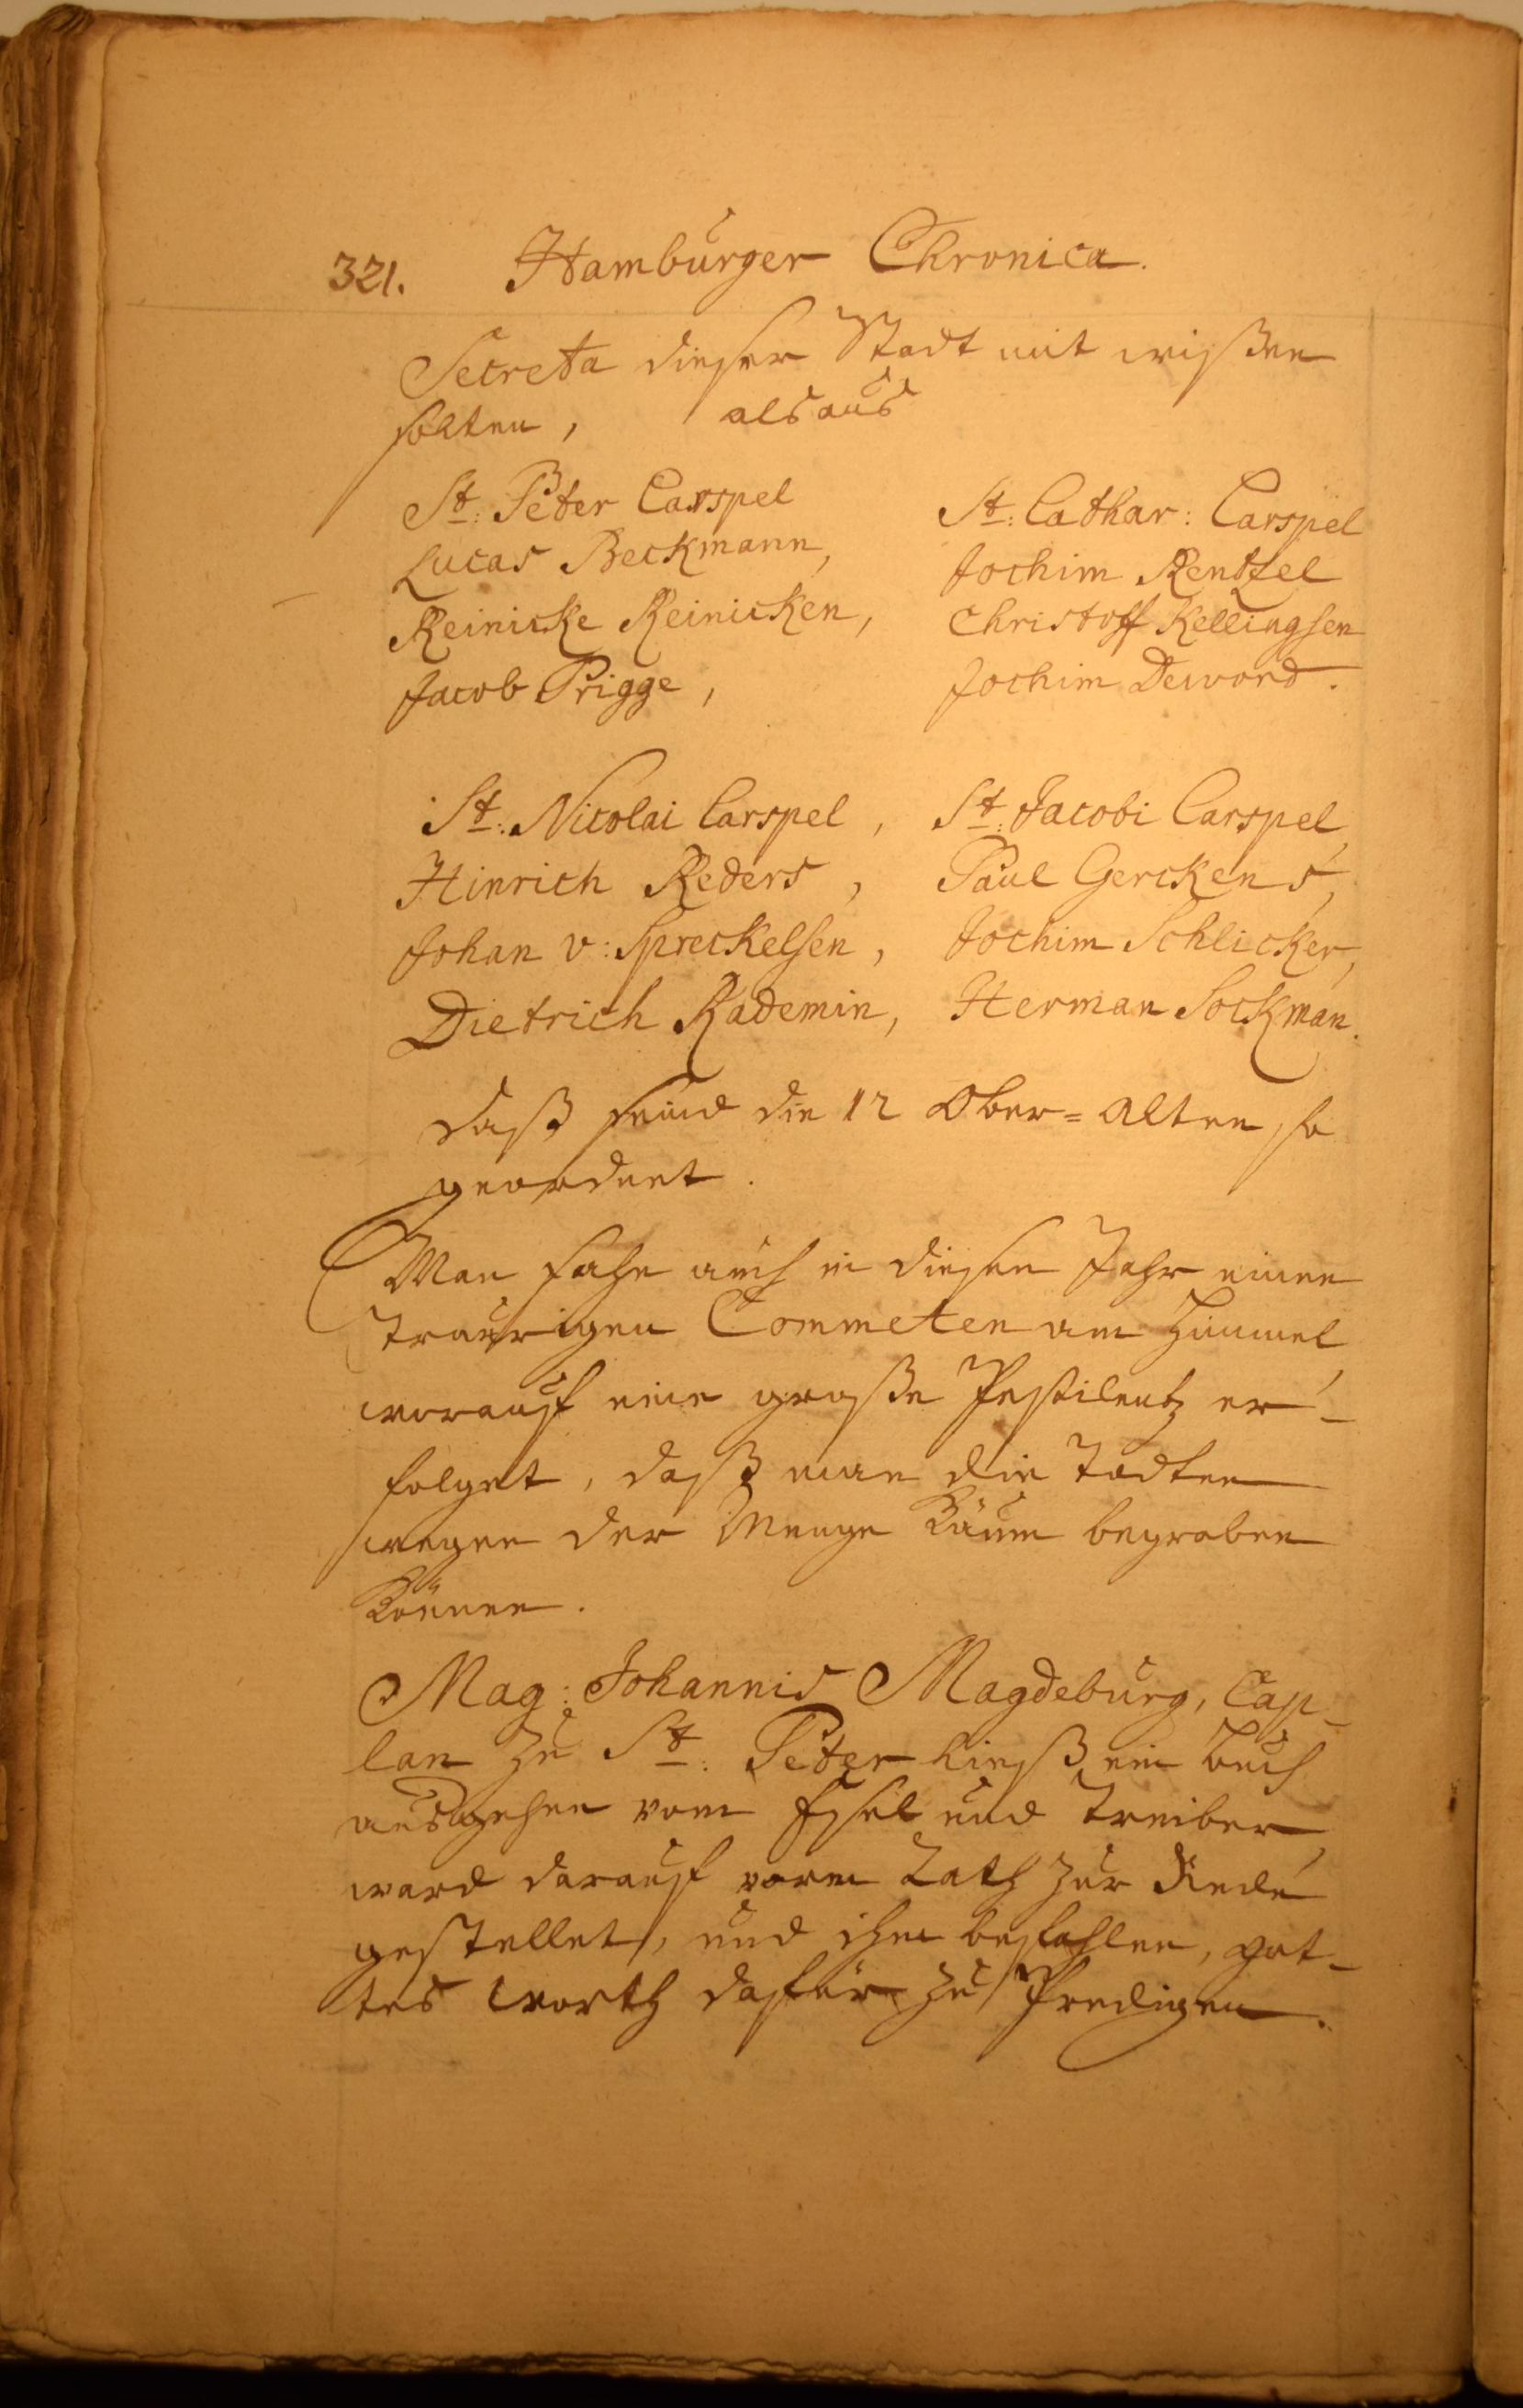 321. Hamburger Chronica.
Secreta dieser Stadt mit wißen
solten, als aus
St: Peter Carspel
Lucas Beckmann,
Reinicke Reinicken,
Jacob Prigge,
St: Cathar: Carspel
Jochim Rentzel
Christoff Kellingsen
Jochim Deword.
St: Nicolai Carspel,
Hinrich Reders,
Johan v: Spreckelsen,
Dietrich Rademin,
St: Jacobi Carspel,
Paul Gerckens,
Jochim Schlicker,
Herman Sockman.
daß seind die 12 Ober=Alten, so
geordnet.
Man sahe auch in diesen Jahr einen
traurigen Commeten am Himmel
worauf eine große Pestilentz er-
folget, daß man die Todten
wegen der Menge Kaum begraben
Können.
Mag: Johannis Magdeburg, Cap-
lan zu St: Peter ließ ein buch
ausgehen vom Esel und Treiber,
ward darauf vorm Rath zur Rede
gestellet, und ihm befohlen, got-
tes Worth dafür zu Predigen.